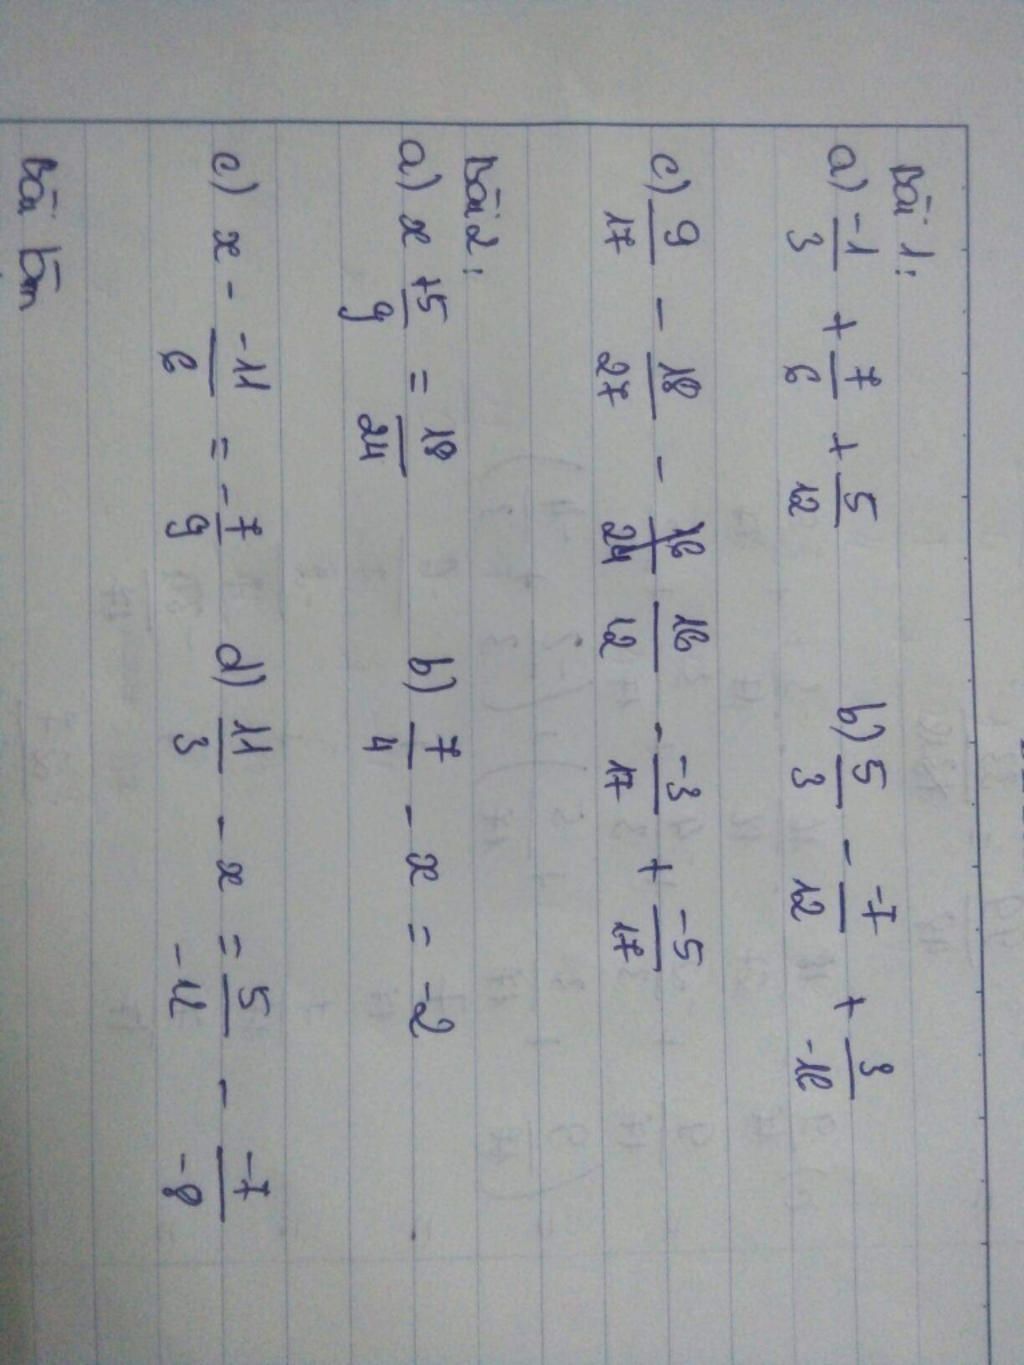 Bài 1:
a) -1/3 + 7/6 + 5/12 b) 5/3 - -7/12 + 3/-12
c) 9/17 - 18/27 - 16/12 - -3/17 + -5/17
Bài 2:
a) x + 5/9 = 18/24 b) 7/4 - x = -2
c) x - -11/6 = -7/9 d) 11/3 - x = 5/-12 - -7/-8
Bài làm